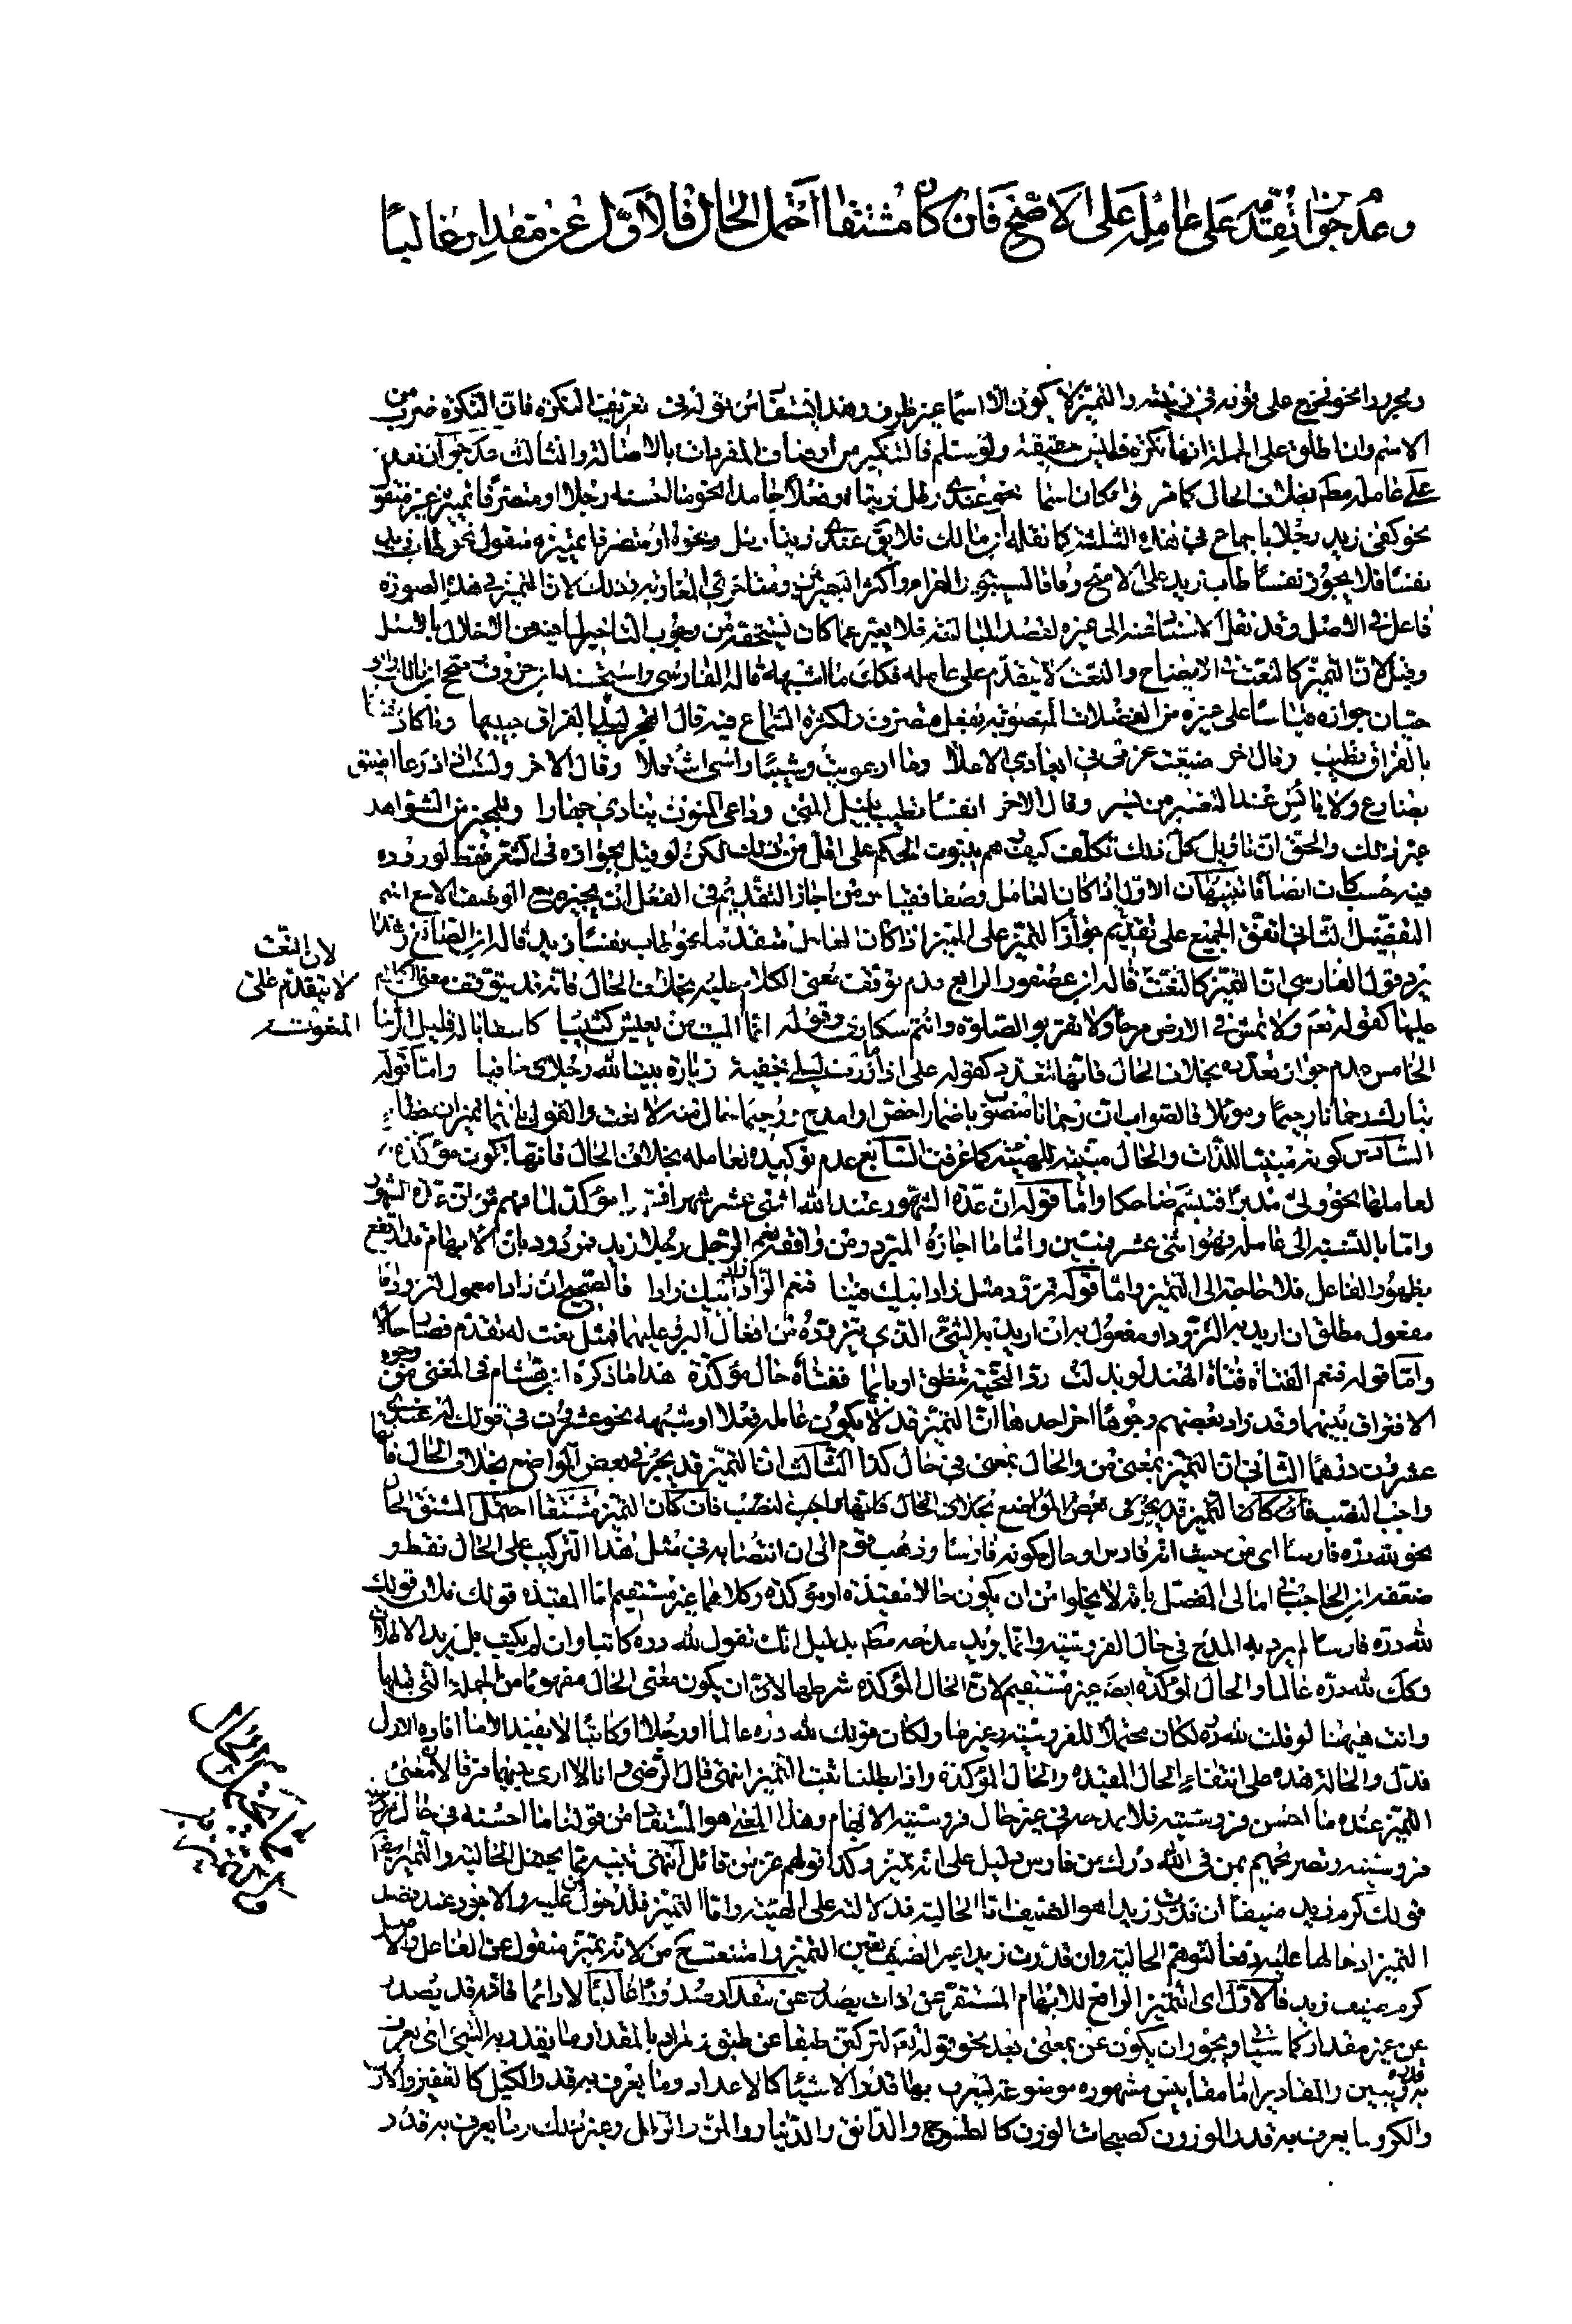 وعدم جواز تقدمه على عامله على الاصح فان كان مشتقا احتمل الحال فالاول عن مقدار غالبًا
ومجرورا نحو فخرج على قومه في زينته والتميز لا يكون الا اسما غير ظرف وهذا يستفاد من قوله في تعريف النكرة فان النكرة ضرب من
الاسم وان اطلق على الجملة انها نكرة فليس حقيقة ولو سلم فالتنكير من اوصاف المفردات بالاصالة والثالث عدم جواز تقدمه
على عامله مطم بخلاف الحال كما مر في امكان اسما نحو عندي رطل زيتا او فعلا جامدا نحو ما احسنه رجلا او متصرفا تميزه غير منقول
نحو كفى زيد رجلا باجماع في هذه الثلثة كما نقله ابن مالك فلا يقال عندي زيتا رطل ونحوه او متصرفا تميزه منقول نحو طاب زيد
نفسًا فلا يجوز نفسًا طاب زيد على الاصح وفاقا لسيبويه والفراء واكثر البصريين ومتاخري المغاربة وذلك لان التميز في هذه الصورة
فاعل في الاصل وقد نقل الاسناد عنه الى غيره لقصد المبالغة فلا يغير عما كان يستحقه من وجوب التاخير لما فيه من الاخلال بالاصل
وقيل لان التميز كالنعت في الايضاح والنعت لا يتقدم على عامله فكك ما اشبهه قاله الفارسي واستحسنه ابن خروف ... ابن مالك وابو
حيان جوازه قياسًا على غيره من الفضلات المنصوبة بفعل متصرف ولكثرة السماع فيه قال اتهجر ليلى بالفراق حبيبها وما كاد نفسا
بالفراق تطيب وقال اخر ضيعت حزمي في ابعادي الاملا وما ارعويت وشيبًا راسي اشتعلا وقال الاخر ولست اذا ذرعا اضيق
بضارع ولا يائس عند التعسر من يسر وقال الاخر انفسًا تطيب بنيل المنى وداعي المنون ينادي جهارا وللمجيز من الشواهد
غير ذلك والحق ان تاويل كل ذلك تكلف كيف وهم يثبتون الحكم على اقل من ذلك لكن لو قيل بجوازه في الشعر فقط لوروده
فيه حسب كان انصافا تنبيهات الاول اذا كان العامل وصفا فقياس من اجاز التقديم في الفعل ان يجيزه مع الوصف الا مع اسم
التفضيل الثاني اتفق الجميع على تقديم جواز التميز على المميز اذا كان العامل متقدما نحو طاب نفسًا زيد قاله ابن الصائغ وهذا
يرد قول الفارسي ان التميز كالنعت قاله ابن عصفور الرابع عدم توقف معنى الكلام عليه بخلاف الحال فانه قد يتوقف معنى الكلام
عليها كقوله تعم ولا تمش في الارض مرحا ولا تقربوا الصلوة وانتم سكارى وقوله انما الميت من يعيش كئيبا كاسفا باله قليل الرجا
الخامس عدم جواز تعدده بخلاف الحال فانها تتعدد كقوله على اذا ما زرت ليلى بخفية زيارة بيت الله رجلاي حافيا واما قوله
تبارك رحمانا رحيمًا وموئلا فالصواب ان رحمانا منصوب باضمار اخص او امدح ورحيما حال منه لا نعت والقول بانهما تميزان خطاء
السادس كونه مبينا للذات والحال مبينة للهيئة كما عرفت السابع عدم توكيده لعامله بخلاف الحال فانها تكون مؤكدة
لعاملها نحو ولى مدبرا فتبسم ضاحكا واما قوله ان عدة الشهور عند الله اثنى عشر شهرا فشهرا مؤكد لما فهم من ان عدة الشهور
واما بالنسبة الى عامله وهو اثنى عشر فمبين واما ما اجازه المبرد ومن وافقه نعم الرجل رجلا زيد فمردود بان الابهام قد ارتفع
بظهور الفاعل فلا حاجة الى التميز واما قوله تزود مثل زاد ابيك فينا فنعم الزاد زاد ابيك زادا فالصحيح ان زادا معمول لتزود اما
مفعول مطلق ان اريد به التزود او مفعول به ان اريد به الشئ الذي يتزوده من افعال البر وعليهما فمثل نعت له تقدم فصار حالا
واما قوله نعم الفتاة فتاة الهند لو بذلت رد التحية نطقا او بايما ففتاة حال مؤكدة هذا ما ذكره ابن هشام في المغني من وجوه
الافتراق بينهما وقد زاد بعضهم وجوها اخر احدها ان التميز قد لا يكون عامله فعلا او شبهه نحو عشرون في قولك عندي
عشرون درهما الثاني ان التميز بمعنى من والحال بمعنى في حال كذا الثالث ان التميز قد يجر في بعض المواضع بخلاف الحال فانها
واجب النصب فان كان التميز قد يجر في بعض المواضع بخلاف الحال فانها واجب النصب فان كان التميز مشتقا احتمل المشتق الحال
نحو لله دره فارسًا اى من حيث انه فارس او حال كونه فارسًا وذهب قوم الى ان انتصابه في مثل هذا التركيب على الحال فقط و
ضعفه ابن الحاجب في امالى المفصل بانه لا يخلوا من ان يكون حالا مقيدة او مؤكدة وكلاهما غير مستقيم اما المقيدة قولك فلان قولك
لله دره فارسًا لم يرد به المدح في حال الفروسية وانما يريد مدحه مطم بدليل انك تقول لله دره كاتبا وان لم يكتب بل يريد الاطلاق
وكك لله دره عالما والحال المؤكدة ايضا غير مستقيم لان الحال المؤكدة شرطها لان يكون معنى الحال مفهومًا من الجملة التي قبلها
وانت هيهنا لو قلت لله دره لكان محتملا للفروسية وغيرها ولكان قولك لله دره عالما او رجلا او كاتبًا لا يفيد الا ما افاده الاول
فدل والحالة هذه على انتفاء الحال المقيدة والحال المؤكدة واذا بطلنا ثبت التميز انتهى قال الرضى وانا لا ارى بينهما فرقا لان معنى
التميز عنده ما احسن فروسيته فلا يمدحه في غير حال فروسيته الا بها وهذا المعنى هو المستفاد من قولنا ما احسنه في حال
فروسيته وتصريحهم بمن في لله درك من فارس دليل على انه تميز وكذا قولهم عز من قائل انتهى تنبيه مما يحتمل الحالية والتميز ايضا
قولك كرم زيد ضيفًا ان قدرت زيدا هو الضيف اما الحالية فدلالته على الهيئة واما التميز فلدخول من عليه والاجود عند قصد
التميز ادخالها عليه دفعا لتوهم الحالية وان قدرت زيدا غير الضيف تعين التميز وامتنعت من لانه تميز منقول عن الفاعل والاصل
كرم ضيف زيد فالاول اى التميز الرافع للابهام المستقر عن ذات يصدر عن مقدار صدورًا غالبًا لا دائما فانه قد يصدر
عن غير مقدار كما سياتي ويجوز ان يكون عن بمعنى بعد نحو قوله تعم لتركبن طبقا عن طبق والمراد بالمقدار ما يقدر به الشئ اى يعرف
به قدره ويبين والمقادير اما مقاييس مشهورة موضوعة ليعرف بها قدر الاشيا كالاعداد وما يعرف به قدر الكيل كالقفيز والارب
والكر وما يعرف به قدر الموزون كصنجات الوزن كالطسوج والدانق والدينار والمن والرطل وغير ذلك وما يعرف به قدر
لان النعت
لا يتقدم على
المنعوت